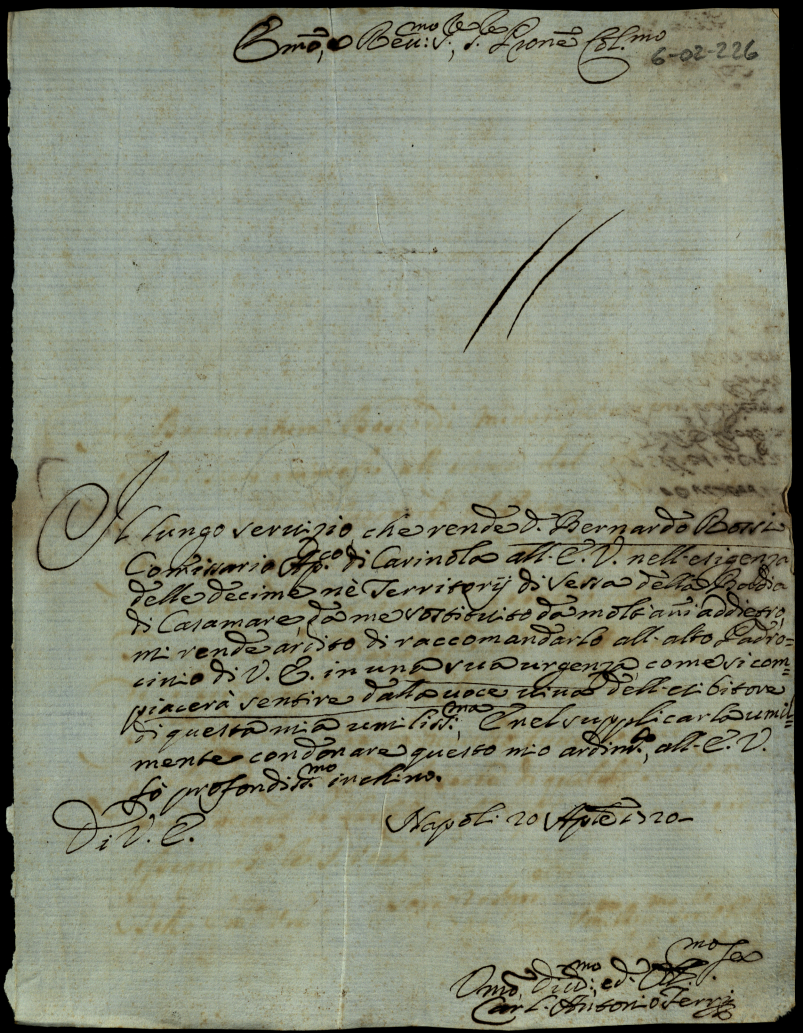 Emō, e Reu:mo S.re, S.re Prone Col.mo
6-02-226
Il lungo seruizio, che rende d. Bernardo Rossi
Comissario Ap.co di Carinola all'E.V. nell'esigenza
delle decime nè Territorij di Sessa della Badia
di Casamare, da me sostituito da molt'añi addietro,
mi rende ardito di raccomandarlo all'alto Padro=
cinio di V. E. in una sua urgenza, come si com=
piacerà sentire dalla uoce uiua dell'esibitore
di questa mia umiliss:ma, E nel supplicarla umil=
mente condonare questo mio ardim.to, all'E.V.
fò profondiss.mo inchino.
Di V. E.
Napoli 20
Umō, Diu:mo, ed
Carl'Antonio Ferri